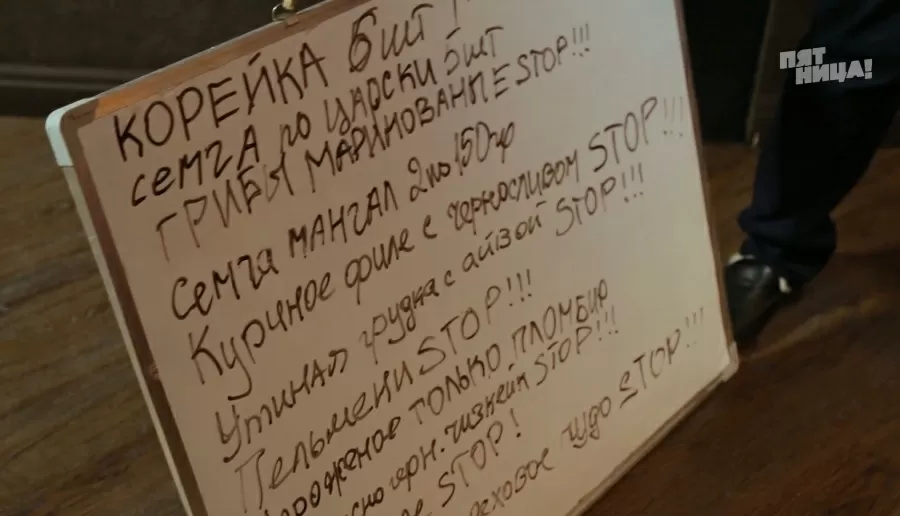 КОРЕЙКА 5шт !
СЕМГА по ЦАРСКИ 5шт
ГРИБЫ МАРИНОВАННЫЕ STOP!!!
Семга МАНГАЛ 2по150гр
Куриное филе с черносливом STOP!!!
Утиная грудка с айвой STOP!!!
Пельмени STOP!!!
ороженое ТОЛЬКО ПЛОМБИР
чизкейк STOP!!!
STOP!
ореховое чудо STOP!!!
ПЯТ
НИЦА!